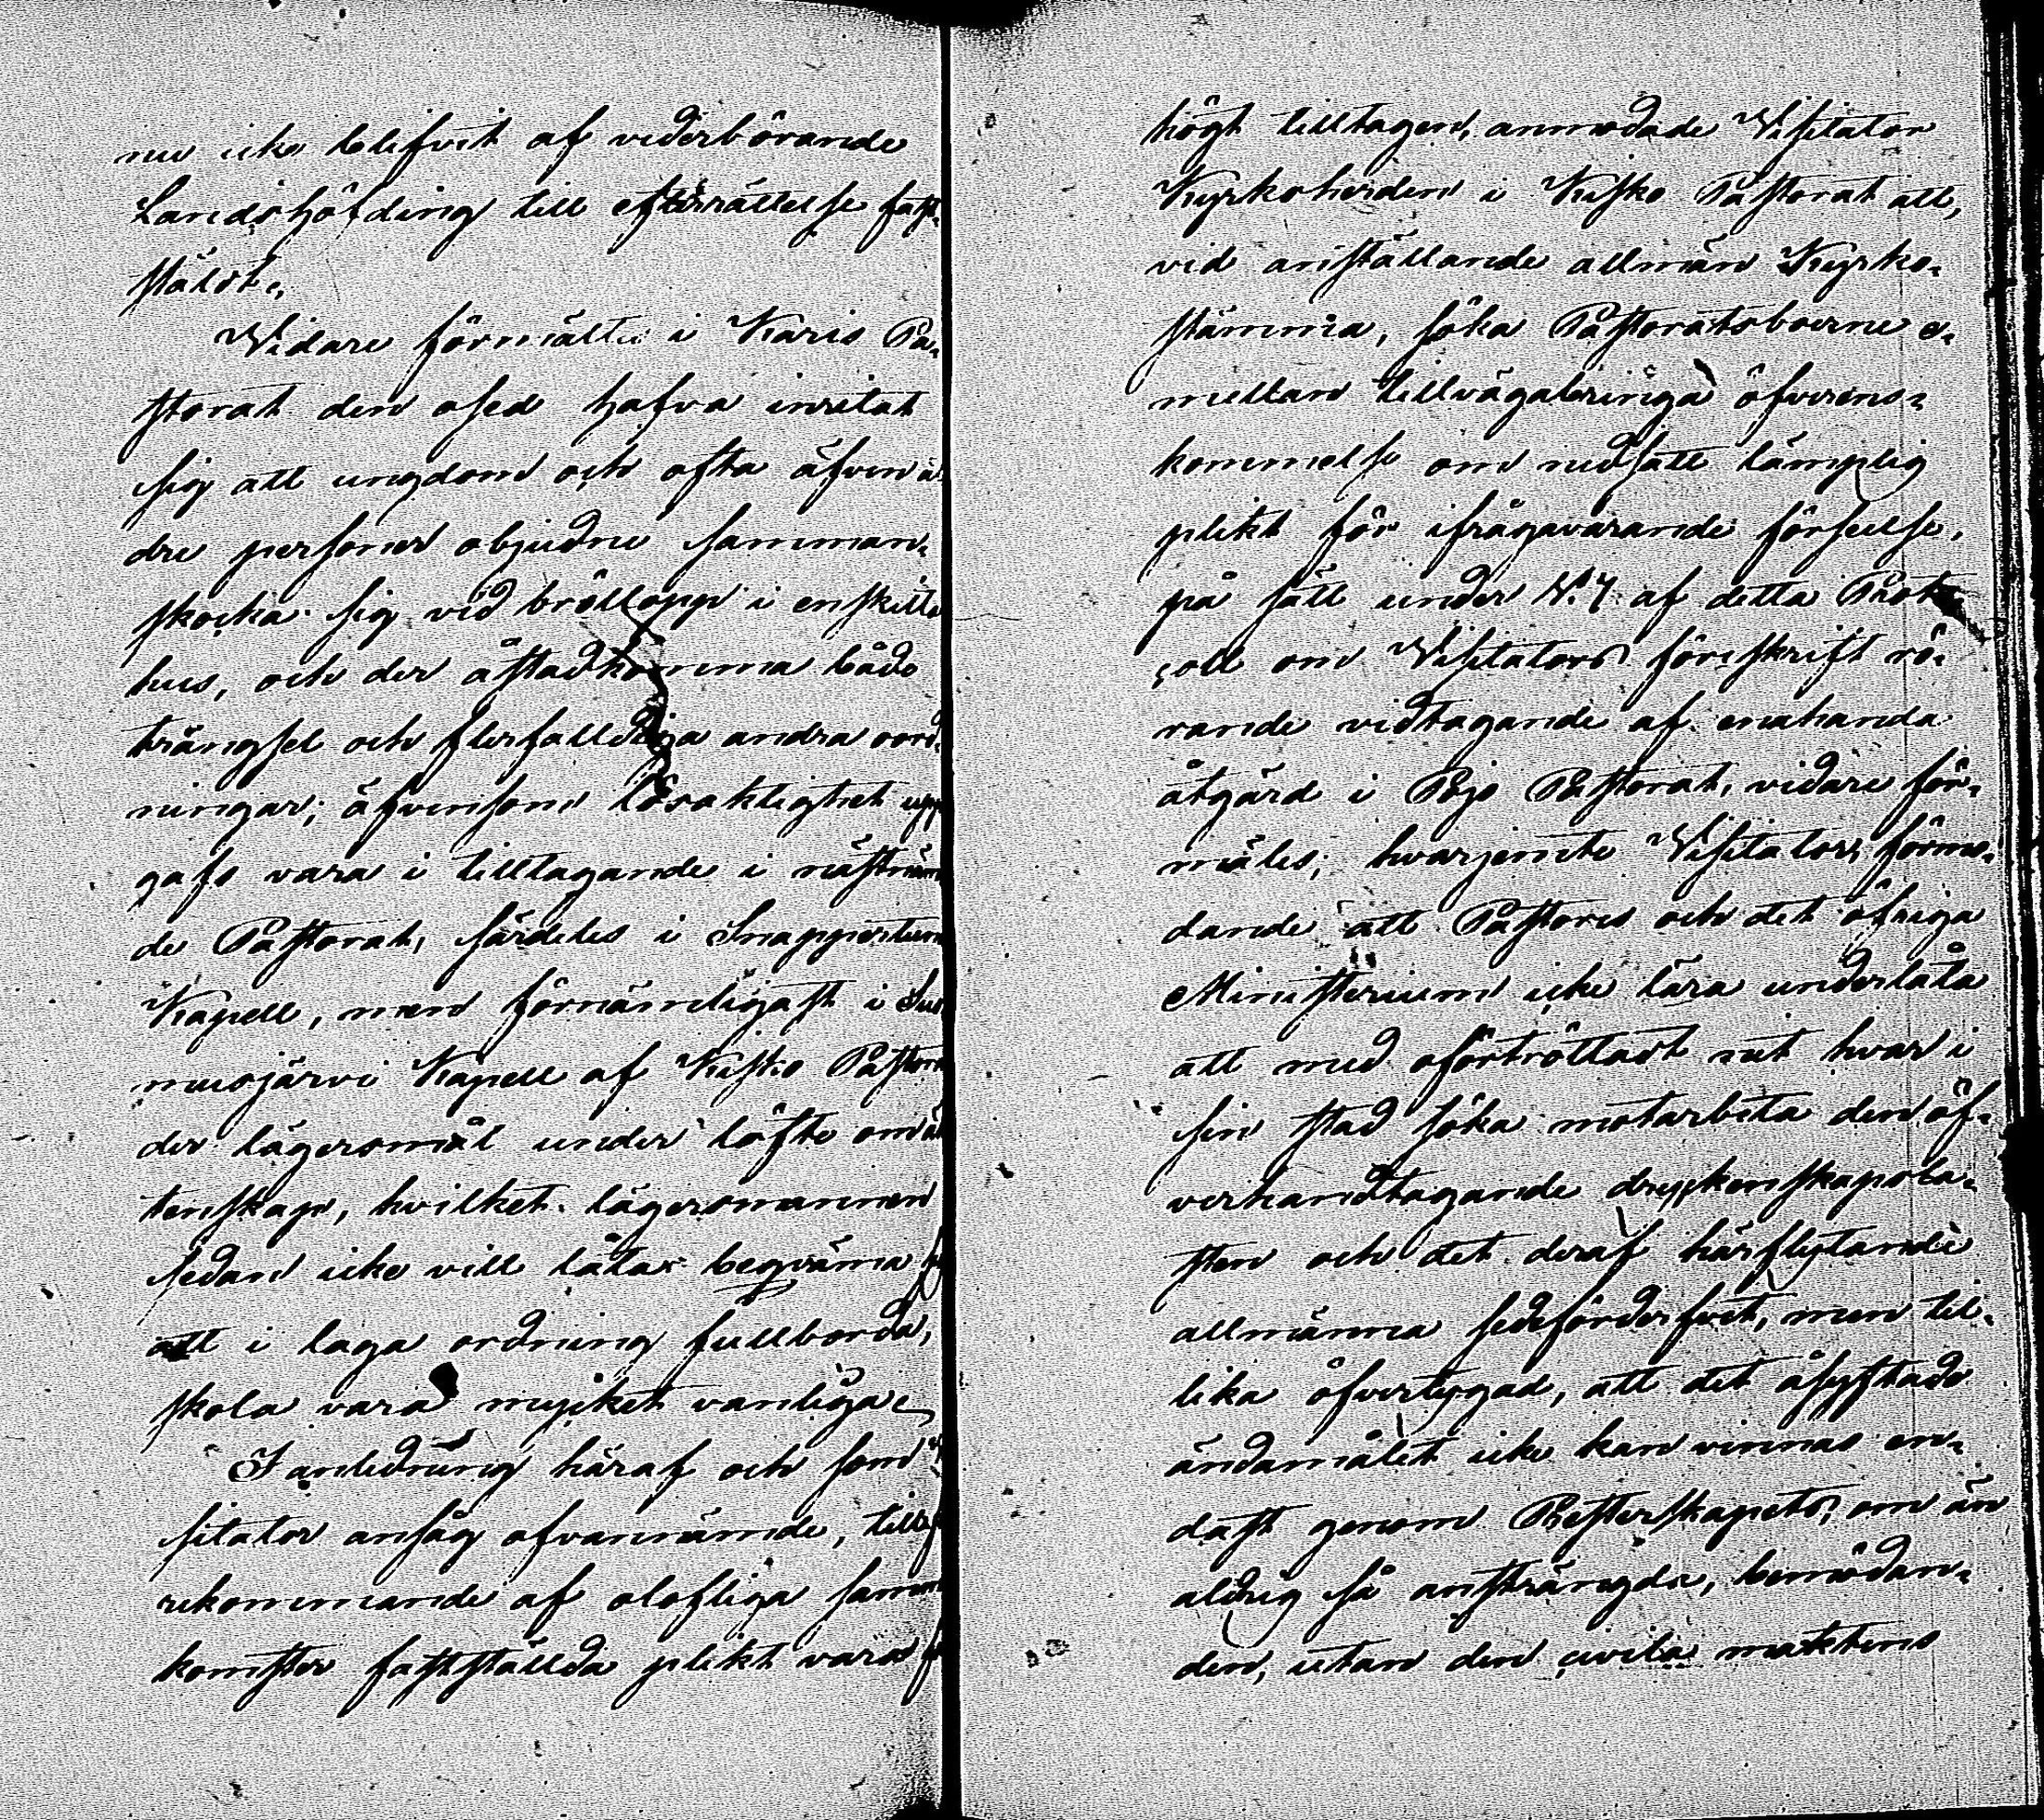 nu icke blifvit af vederbörande
Landshöfding till efterrättelse fast-
stäldt.
Vidare förmältes i Karis Pa-
storat den osed hafva inritat
sig att ungdom och ofta äfven äl
dre personer objudne samman-
skocka sig vid bröllopp i enskilte
hus, och der åstadkomma både
trängsel och flerfalldiga andra oord-
ningar; äfvensom lösaktighet upp-
gafs vara i tilltagande i nästnäm
de Pastorat, särdeles i Snappertuna
Kapell, men förnämligast i Suo
musjärvi Kapell af Kisko Pastorat
der lägersmål under löfte om äk
tenskap, hvilket lägersmannen
sedan icke vill låta beqväma sig
att i laga ordning fullborda,
skola vara mycket vanliga.
I anledning häraf och som Vi
sitator ansåg ofvannämnde, till
rekommande af olofliga samman
komster fastställda plikt vara för
högt tilltagen, anmodade Visitator
Kyrkoherden i Kisko Pastorat att,
vid anställande allmän Kyrko-
stämma, söka Pastoratsboerne e-
mellan tillvägabringa öfverens-
kommelse om nedsatt lämplig
plikt för ifrågavarande förseelse,
på sätt under N:o 7 af detta Proto
coll om Visitators föreskrift rö-
rande vidtagande af enahanda
åtgärd i Pojo Pastorat, vidare för-
mäles; hvarjemte Visitator, förmo-
dande att Pastores och det öfriga
Ministerium icke lära underlåta
att med oförtröttadt nit hvar i
sin stad söka motarbeta den öf-
verhandtagande dryckenskapsla-
sten och det deraf härflytande
allmänna sedeförderfvet, men til-
lika öfvertygad, att det åsyftade
ändamålet icke kan vinnas en-
dast genom Presterskapets, om än
aldrig så ansträngda, bemödan-
den, utan den civila maktens